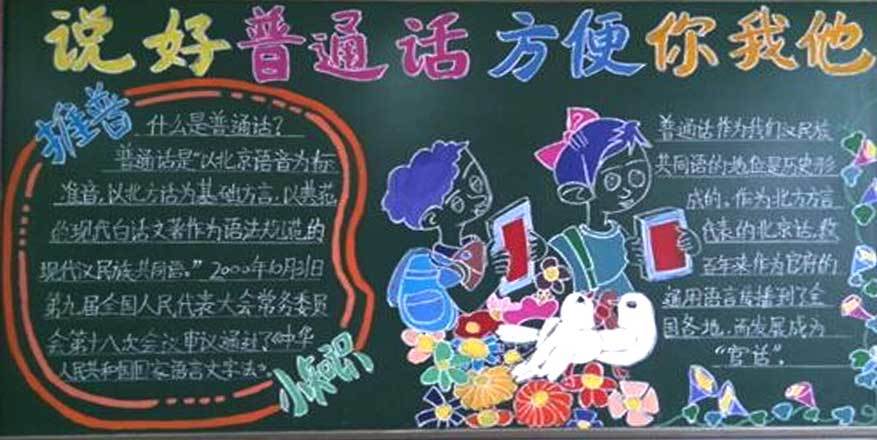 说好普通话 方便你我他
推普
什么是普通话?
普通话是"以北京语音为标
准音,以北方话为基础方言,以典范
的现代白话文著作为语法规范的
现代汉民族共同语。"2000年10月31日
第九届全国人民代表大会常务委员
会第十八次会议审议通过了《中华
人民共和国国家语言文字法》。
小知识
普通话作为我们汉民族
共同语的地位是历史形
成的。作为北方方言
代表的北京话,数
百年来作为官府的
通用语言传播到了全
国各地,而发展成为
"官话"。